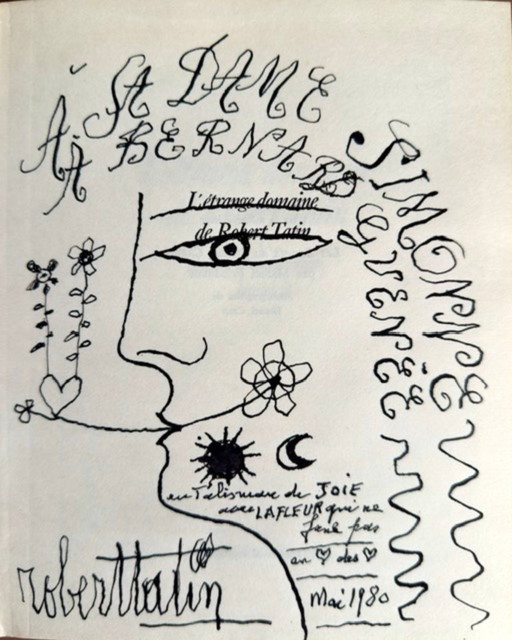 À SA DAME SIMONNE
À BERNARD GUENÉE
L'étrange domaine
de Robert Tatin
en Talisman de JOIE
avec LAFLEUR qui ne
fane pas
au ♡ des ♡
Mai 1980
robert tatin